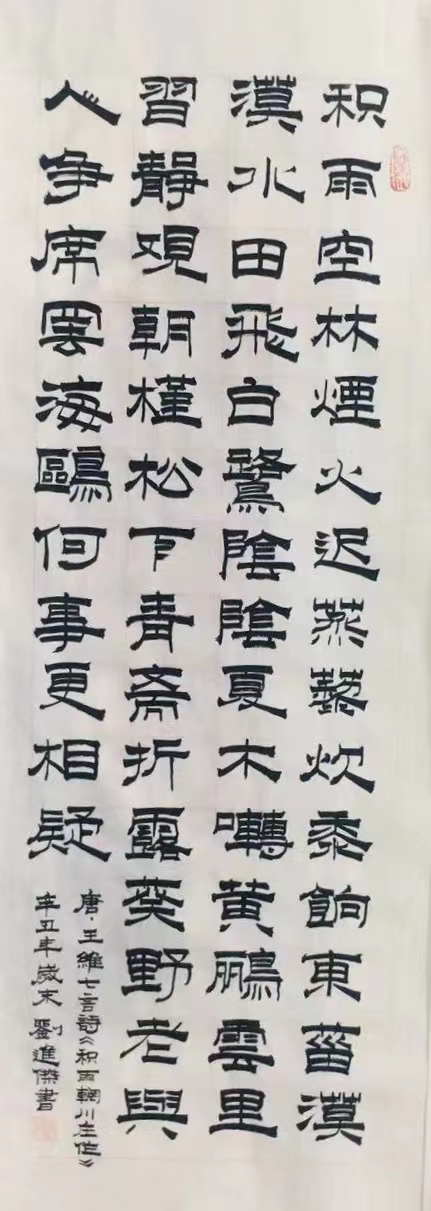 积雨空林煙火迟蒸藜炊黍餉東菑漠
漠水田飛白鷺陰陰夏木囀黄鸝雲里
習靜观朝槿松下青斋折露葵野老與
人争席罢海鷗何事更相疑
唐·王維七言詩《积雨輞川庄作》
辛丑年嵗末 劉進傑書